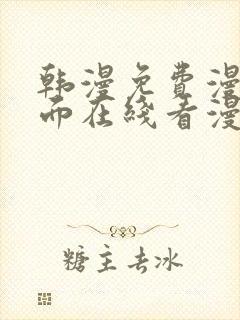 韩漫免费漫
而在线看漫
糖主去冰